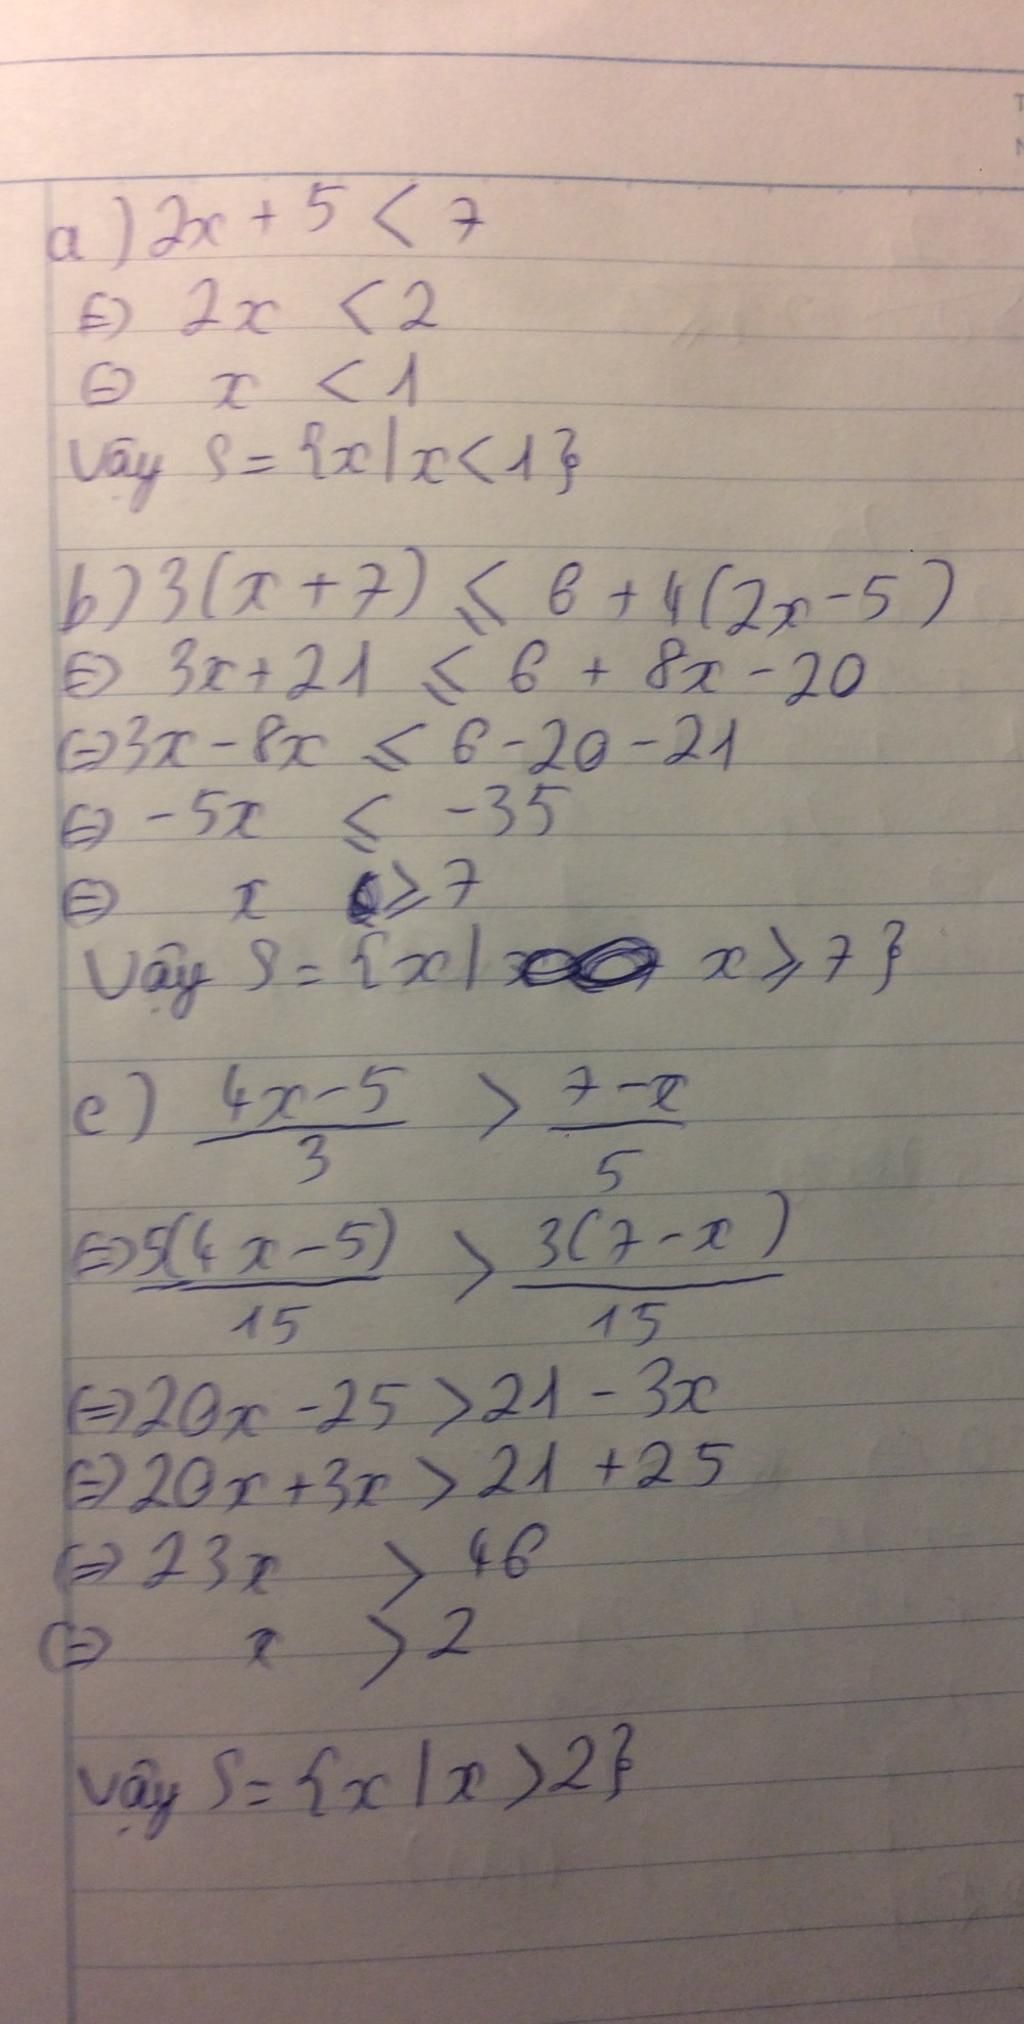 a) 2x + 5 < 7
⇔ 2x < 2
⇔ x < 1
Vậy S = {x | x < 1}
b) 3(x + 7) ⩽ 6 + 4(2x - 5)
⇔ 3x + 21 ⩽ 6 + 8x - 20
⇔ 3x - 8x ⩽ 6 - 20 - 21
⇔ -5x ⩽ -35
⇔ x ⩾ 7
Vậy S = {x | x ⩾ 7}
c) (4x - 5)/3 > (7 - x)/5
⇔ 5(4x - 5)/15 > 3(7 - x)/15
⇔ 20x - 25 > 21 - 3x
⇔ 20x + 3x > 21 + 25
⇔ 23x > 46
⇔ x > 2
Vậy S = {x | x > 2}